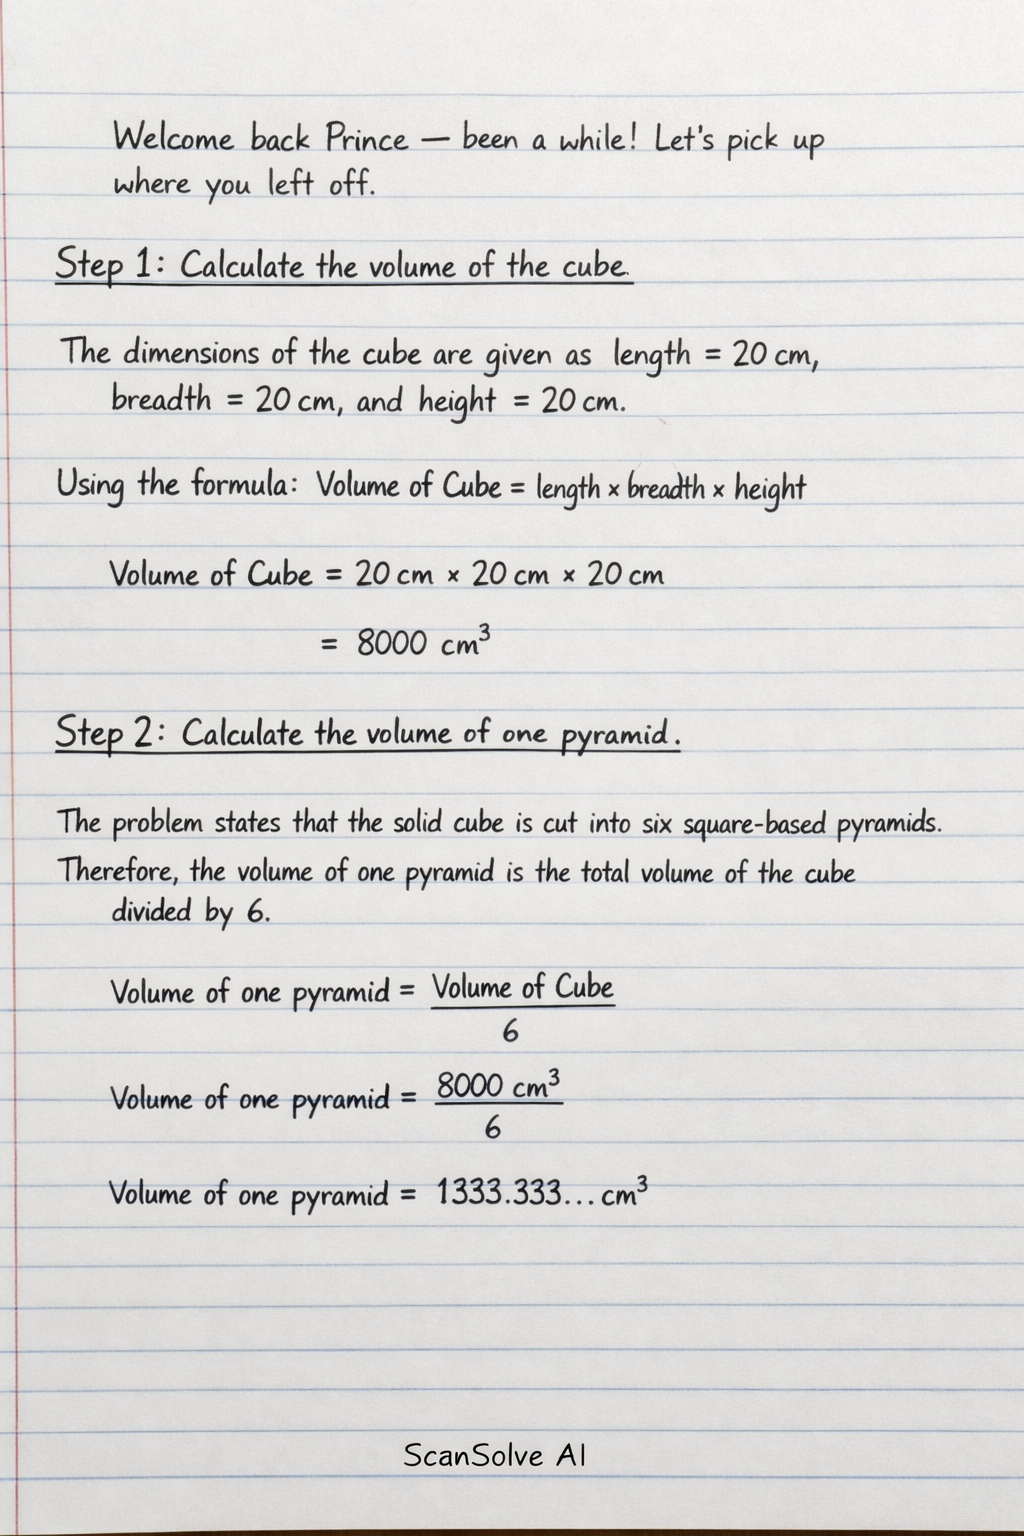 Welcome back Prince — been a while! Let's pick up
where you left off.
Step 1: Calculate the volume of the cube.
The dimensions of the cube are given as length = 20 cm,
breadth = 20 cm, and height = 20 cm.
Using the formula: Volume of Cube = length × breadth × height
Volume of Cube = 20 cm × 20 cm × 20 cm
= 8000 cm³
Step 2: Calculate the volume of one pyramid.
The problem states that the solid cube is cut into six square-based pyramids.
Therefore, the volume of one pyramid is the total volume of the cube
divided by 6.
Volume of one pyramid = Volume of Cube
6
Volume of one pyramid = 8000 cm³
6
Volume of one pyramid = 1333.333... cm³
ScanSolve AI